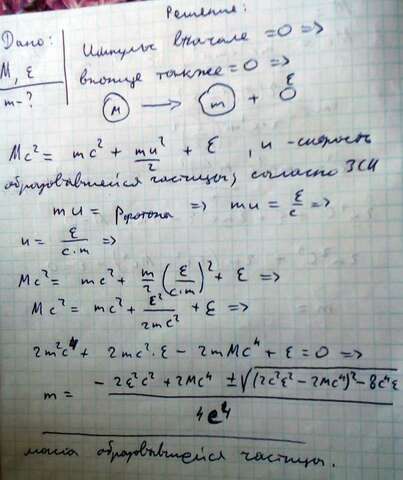 Решение:
Дано:
M, ε
m-?
Импульс вначале =0 =>
вконце также =0 =>
M → m + ε
Mc² = mc² + mu²/2 + ε, u - скорость
образовавшейся частицы, согласно ЗСИ
mu = Pфотона => mu = ε/c =>
u = ε/(c·m) =>
Mc² = mc² + m/2 (ε/(c·m))² + ε =>
Mc² = mc² + ε²/(2mc²) + ε =>
2m²c⁴ + 2mc²·ε - 2mMc⁴ + ε = 0 =>
m = (-2ε²c² + 2Mc⁴ ± √((2c²ε² - 2Mc⁴)² - 8c⁴ε))/(4c⁴)
масса образовавшейся частицы.